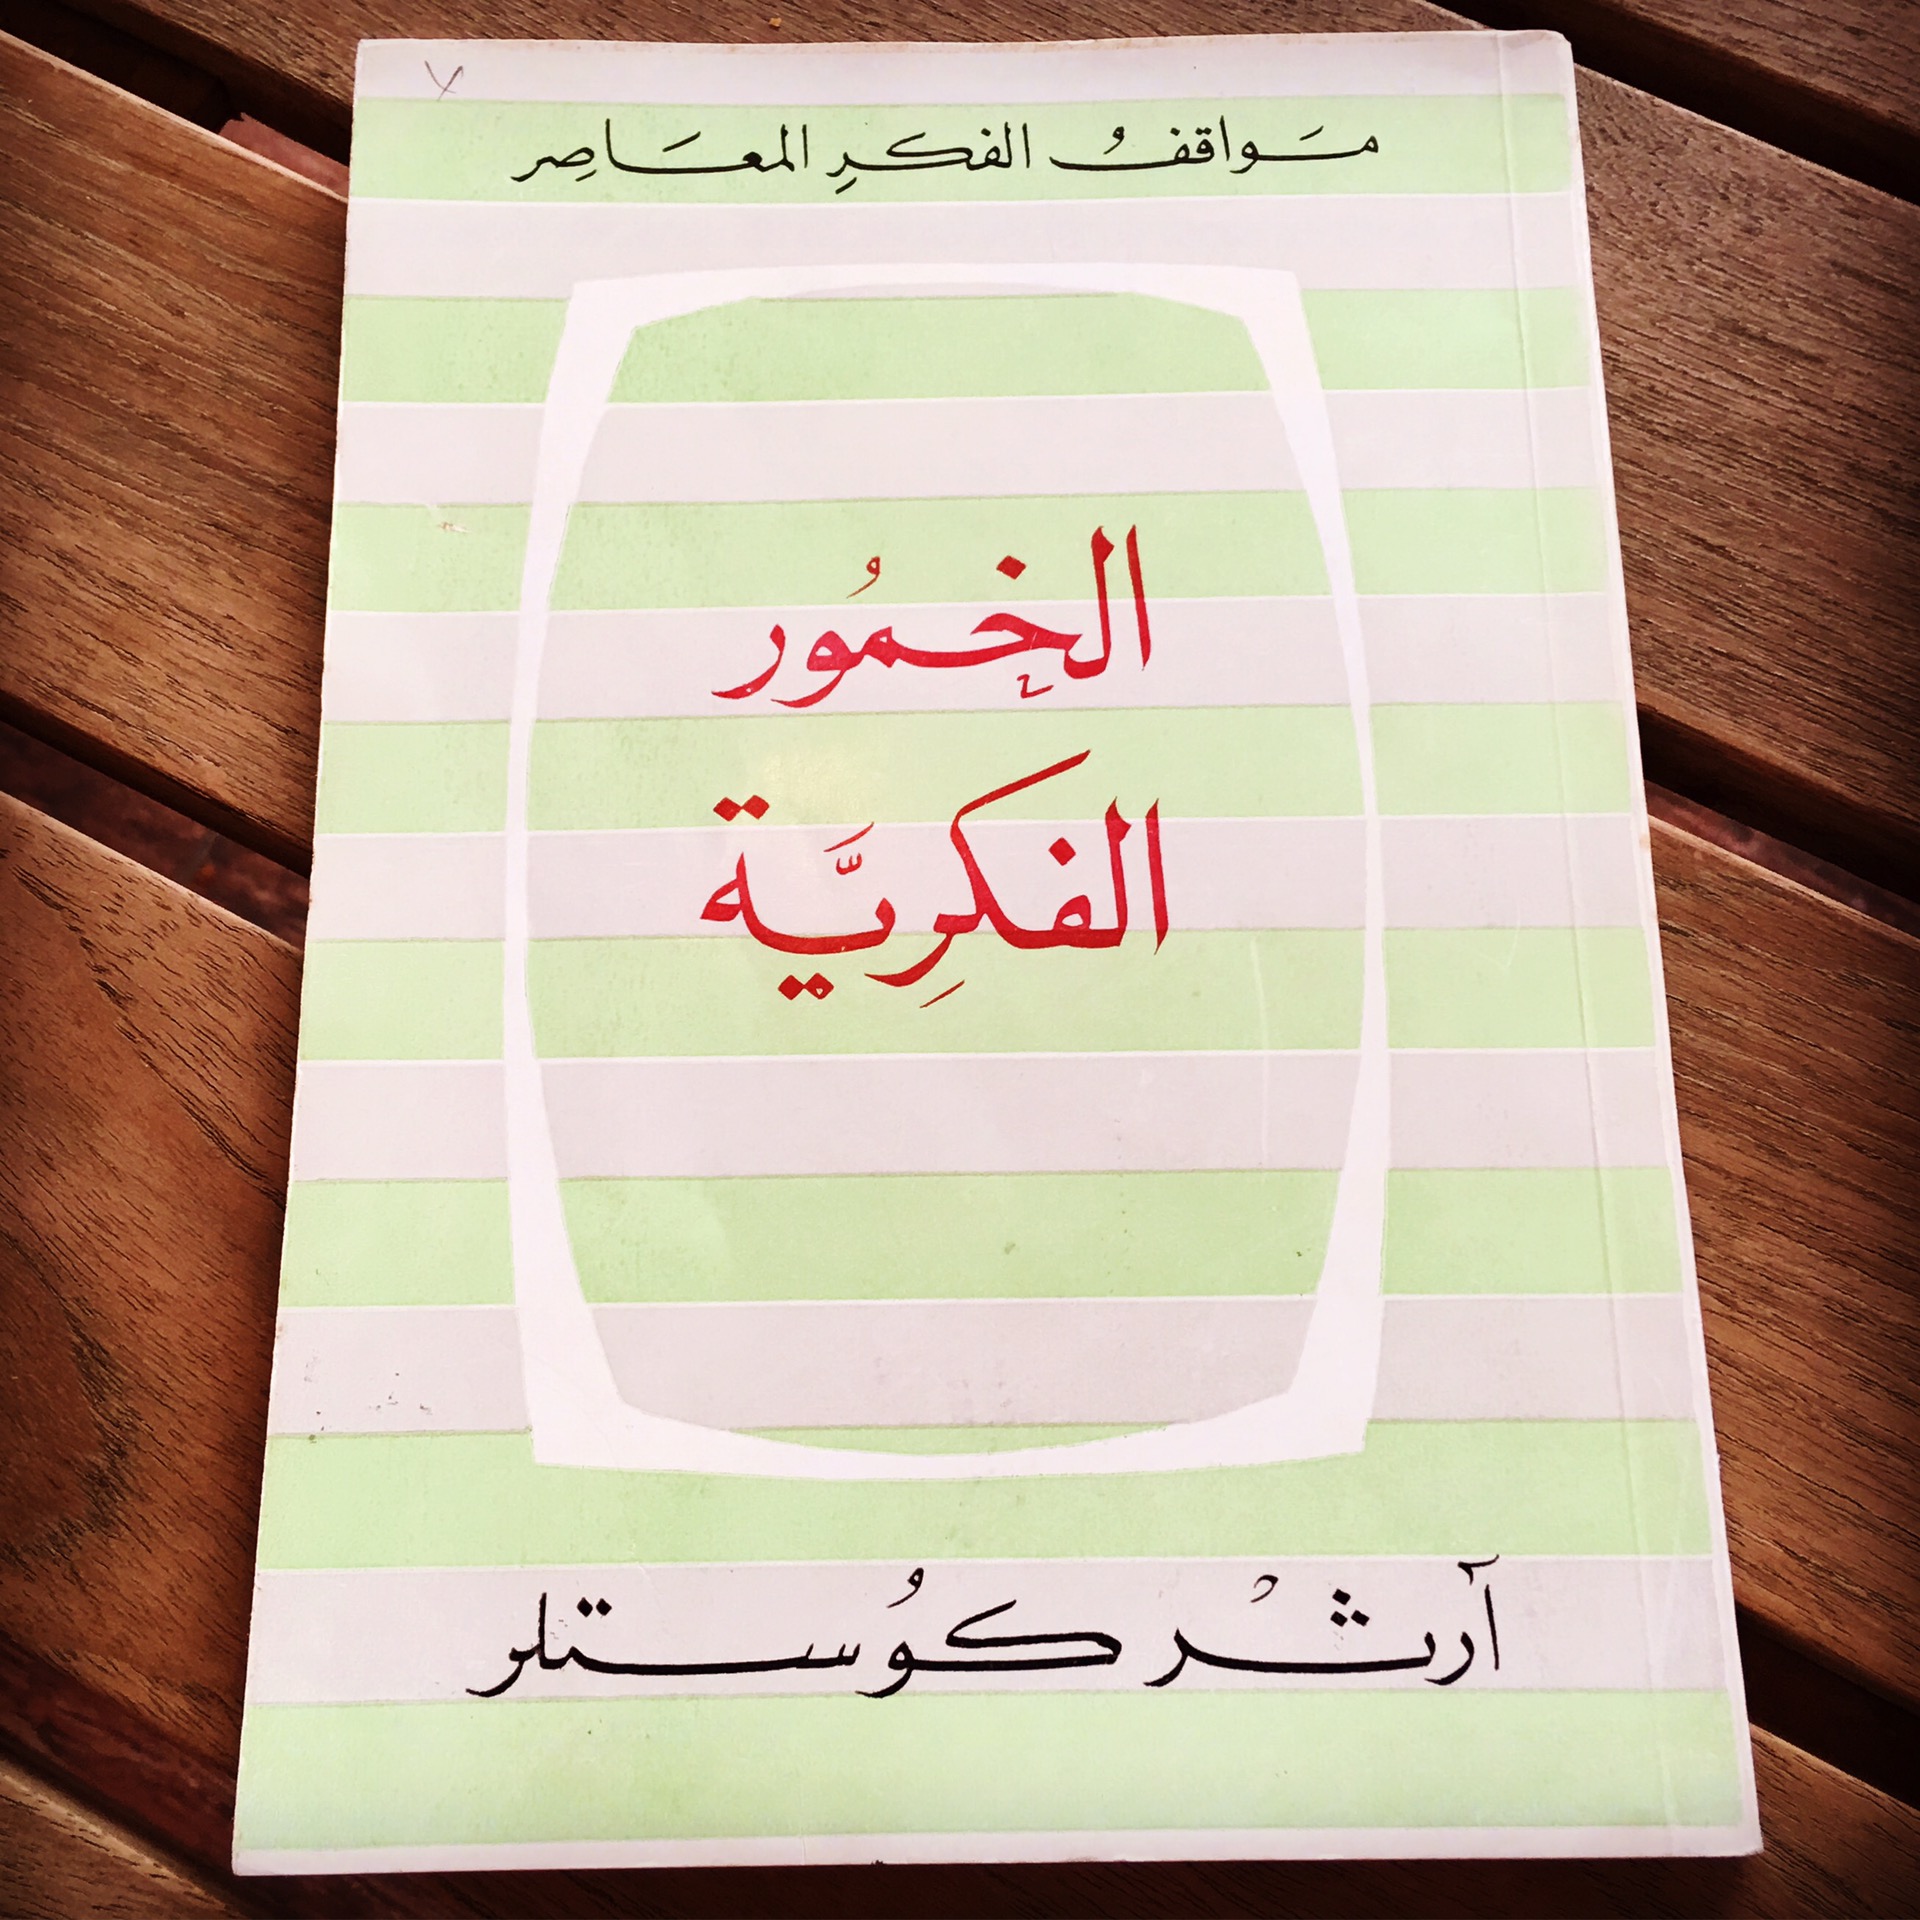 مَواقفُ الفكرِ المعَاصِر
الخمُور
الفكرِيَّة
آرثْر كوُستلر